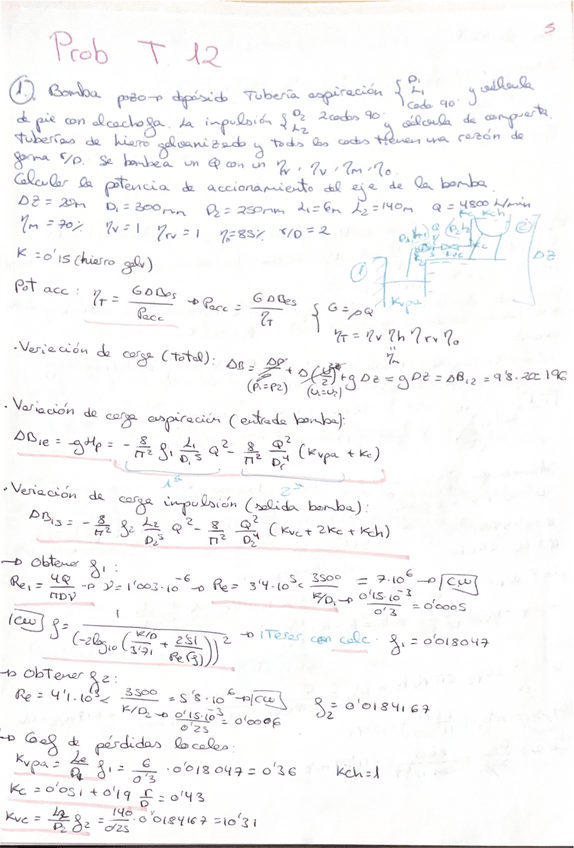 5
Prob T. 12
1. Bomba pozo → depósito Tubería aspiración { D1 L1 codo 90º y válvula
de pie con alcachofa. La impulsión { D2 L2 2 codos 90º y válvula de compuerta.
Tuberías de hierro galvanizado y todos los codos tienen una razón de
forma r/D. Se bombea un Q con un ηr, ηv, ηm, ηo.
Calcular la potencia de accionamiento del eje de la bomba.
ΔZ = 20m D1 = 300mm D2 = 250mm L1 = 6m L2 = 140m Q = 4800 L/min
ηm = 70% ηv = 1 ηrv = 1 ηo = 85% r/D = 2
K = 0'15 (hierro galv)
Pot acc: ηT = GΔBes / Pacc → Pacc = GΔBes / ηT { G = ρQ
ηT = ηv ηh ηrv ηo
ηm
Kvpa ΔZ
· Variación de carga (total): ΔB = ΔP/ρ + Δ(u²/2) + gΔz = gΔz = ΔB12 = 9'8·20 = 196
(P1=P2) (u1=u2)
· Variación de carga aspiración (entrada bomba):
ΔB1e = -gHp = - 8/π² f1 L1/D1⁵ Q² - 8/π² Q²/D1⁴ (Kvpa + Kc)
1º 2º
· Variación de carga impulsión (salida bomba):
ΔB13 = - 8/π² f2 L2/D2⁵ Q² - 8/π² Q²/D2⁴ (Kvc + 2Kc + Kch)
→ Obtener f1:
Re1 = 4Q/πDν → ν = 1'003·10⁻⁶ → Re = 3'4·10⁵ < 3500 / K/D1 = 7·10⁶ → CW
→ 0'15·10⁻³ / 0'3 = 0'0005
CW f = 1 / (-2log10 (K/D / 3'71 + 2'51 / Re √f))² → iterar con calc. f1 = 0'018047
→ Obtener f2:
Re = 4'1·10⁵ < 3500 / K/D2 = 5'8·10⁶ → CW f2 = 0'0184167
→ 0'15·10⁻³ / 0'25 = 0'0006
→ Coef de pérdidas locales:
Kvpa = Le/D1 f1 = 6/0'3 · 0'018047 = 0'36 Kch = 1
Kc = 0'051 + 0'19 r/D = 0'43
Kvc = L2/D2 f2 = 140/0'25 · 0'0184167 = 10'31